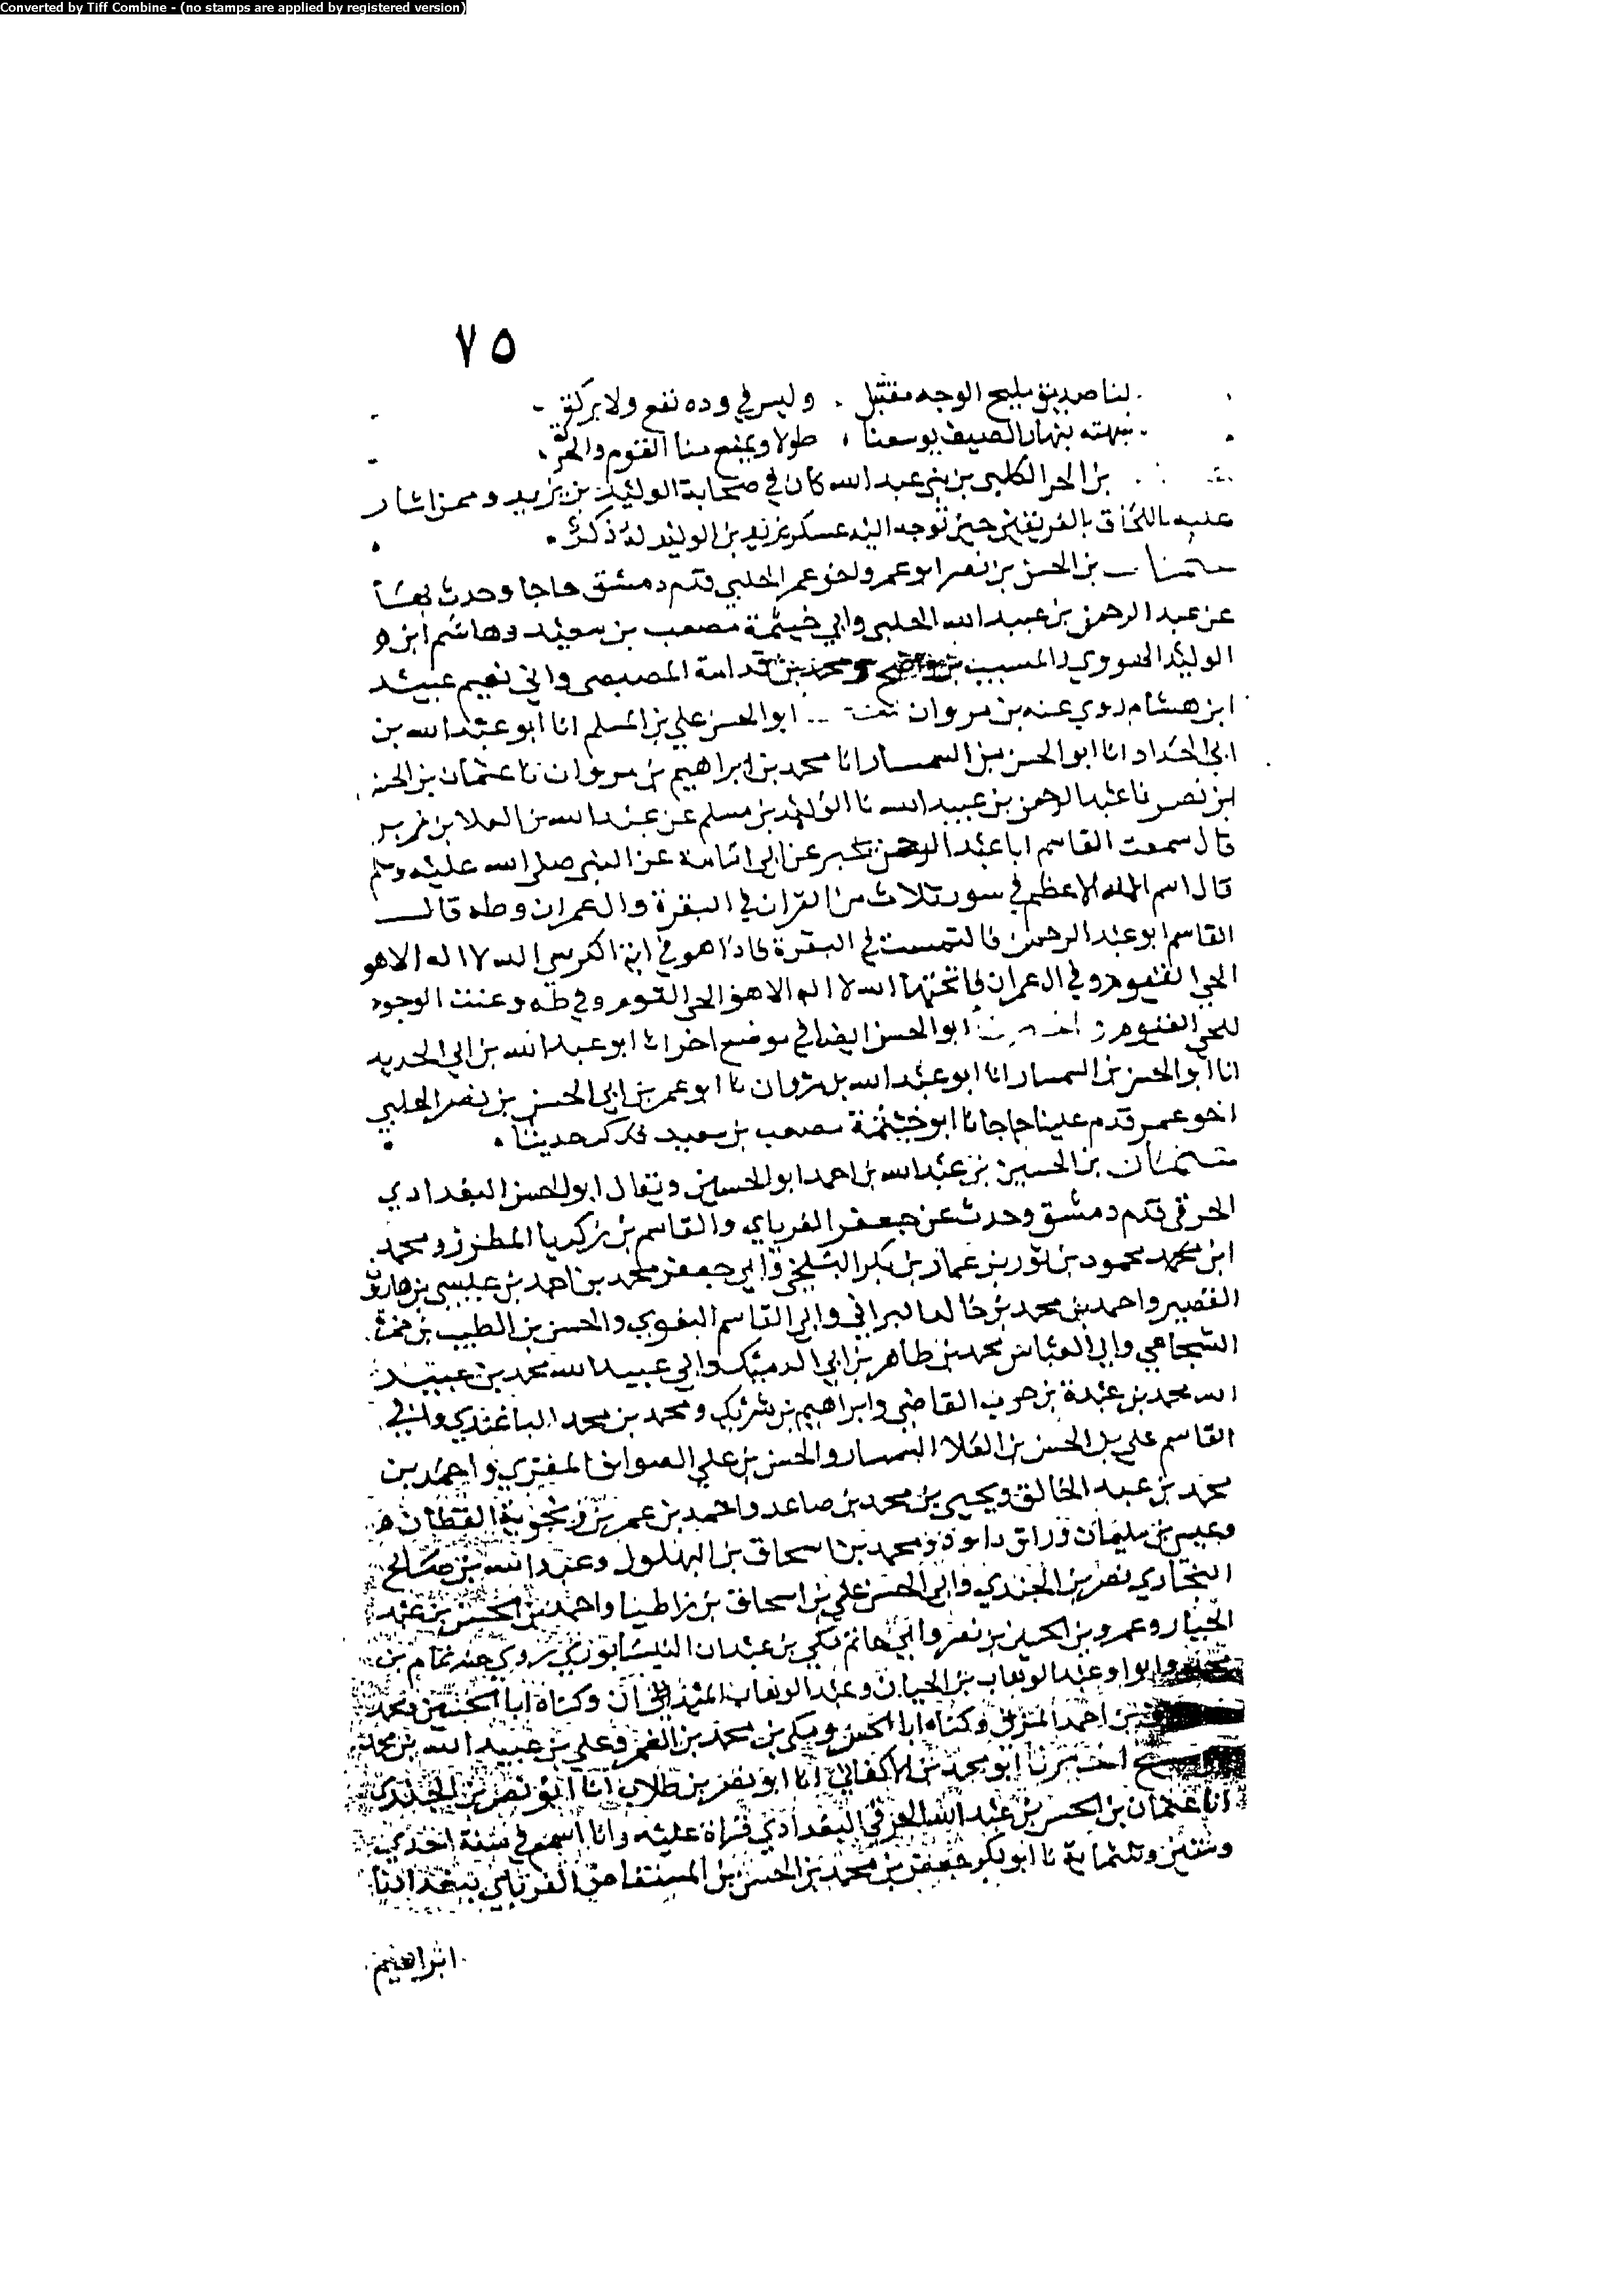 Converted by Tiff Combine - (no stamps are applied by registered version)
٧٥
لنا صديق مليح الوجه مقتبل وليس في وده نفع ولا بركة
شبهته بنهار الصيف يوسعنا طولا ويمنع منا النوم والحركة
بن الحر الكلبي من بني عبد الله كان في صحابة الوليد بن يزيد وممن اشار
عليه باللحاق بالقريتين حين توجه اليه عسكر يزيد بن الوليد له ذكر
عثمان بن الحسن بن نصر ابو عمرو اخو عمر الحلبي قدم دمشق حاجا وحدث بها
عن عبد الرحمن بن عبيد الله الحلبي وابي خيثمة مصعب بن سعيد وهاشم ابن
الوليد الهروي والمسيب بن واضح ومحمد بن قدامة المصيصي وابي نعيم عبيد
ابن هشام روي عنه بن مروان ابو الحسن علي بن المسلم انا ابو عبد الله بن
ابي الحداد انا ابو الحسن بن السمسار انا محمد بن ابراهيم بن مروان نا عثمان بن الحسن
ابن نصر نا عبد الرحمن بن عبيد الله نا الوليد بن مسلم عن عبد الله بن العلا بن زبر
قال سمعت القاسم ابا عبد الرحمن يخبر عن ابي امامة عن النبي صلى الله عليه وسلم
قال اسم الله الاعظم في سور ثلاث من القران في البقرة وال عمران وطه قال
القاسم ابو عبد الرحمن فالتمست في البقرة فاذا هو في اية الكرسي الله لا اله الا هو
الحي القيوم وفي ال عمران فاتحتها الله لا اله الا هو الحي القيوم وفي طه وعنت الوجوه
للحي القيوم ابو الحسن ايضا في موضع اخر انا ابو عبد الله بن ابي الحديد
انا ابو الحسن بن السمسار انا ابو عبد الله بن مروان نا ابو عمر بن ابي الحسن بن نصر الحلبي
اخو عمر قدم علينا حاجا نا ابو خيثمة مصعب بن سعيد فذكر حديثا
عثمان بن الحسين بن عبد الله بن احمد ابو الحسين ويقال ابو الحسن البغدادي
الخرقي قدم دمشق وحدث عن جعفر الفريابي والقاسم بن زكريا المطرز ومحمد
ابن محمد محمود بن نور بن عمار بن بكر البلخي وابي جعفر محمد بن احمد بن عيسى بن هارون
القصير واحمد بن محمد بن خالد البراثي وابي القاسم البغوي والحسن بن الطيب بن
الشجاعي وابي العباس محمد بن طاهر بن ابي الدميك وابي عبيد الله محمد بن عبيد
الله محمد بن عبدة بن حرب القاضي وابراهيم بن شريك ومحمد بن محمد الباغندي وابي
القاسم علي بن الحسن بن العلا السمسار والحسن بن علي الصواف المقري واحمد بن
محمد بن عبد الخالق ويحيى بن محمد بن صاعد واحمد بن عمر بن زنجويه القطان
وعيسى بن سليمان وراق داود ومحمد بن اسحاق بن البهلول وعبد الله بن صالح
البخاري نصر بن الجندي وابي الحسن علي بن اسحاق بن زاطيا واحمد بن الحسن بن عبد
الجبار وعمرو بن الحسين بن نصر وابي حاتم مكي بن عبدان النيسابوري روي عنه تمام بن
وعبد الوهاب بن الجبان وعبد الوهاب الميداني وكناه ابا الحسين ومحمد
بن احمد وكناه ابا الحسن ومكي بن محمد بن الغمر وعلي بن عبيد الله بن محمد
اخبرنا ابو محمد بن الاكفاني انا ابو نصر بن طلاب انا ابو نصر بن الجندي
انا عثمان بن الحسن بن عبد الله الخرقي البغدادي قراة عليه وانا اسمع في سنة احدي
وستين وثلثماية نا ابو بكر جعفر بن محمد بن الحسن بن المستفاض الفريابي ببغداد نا
ابراهيم